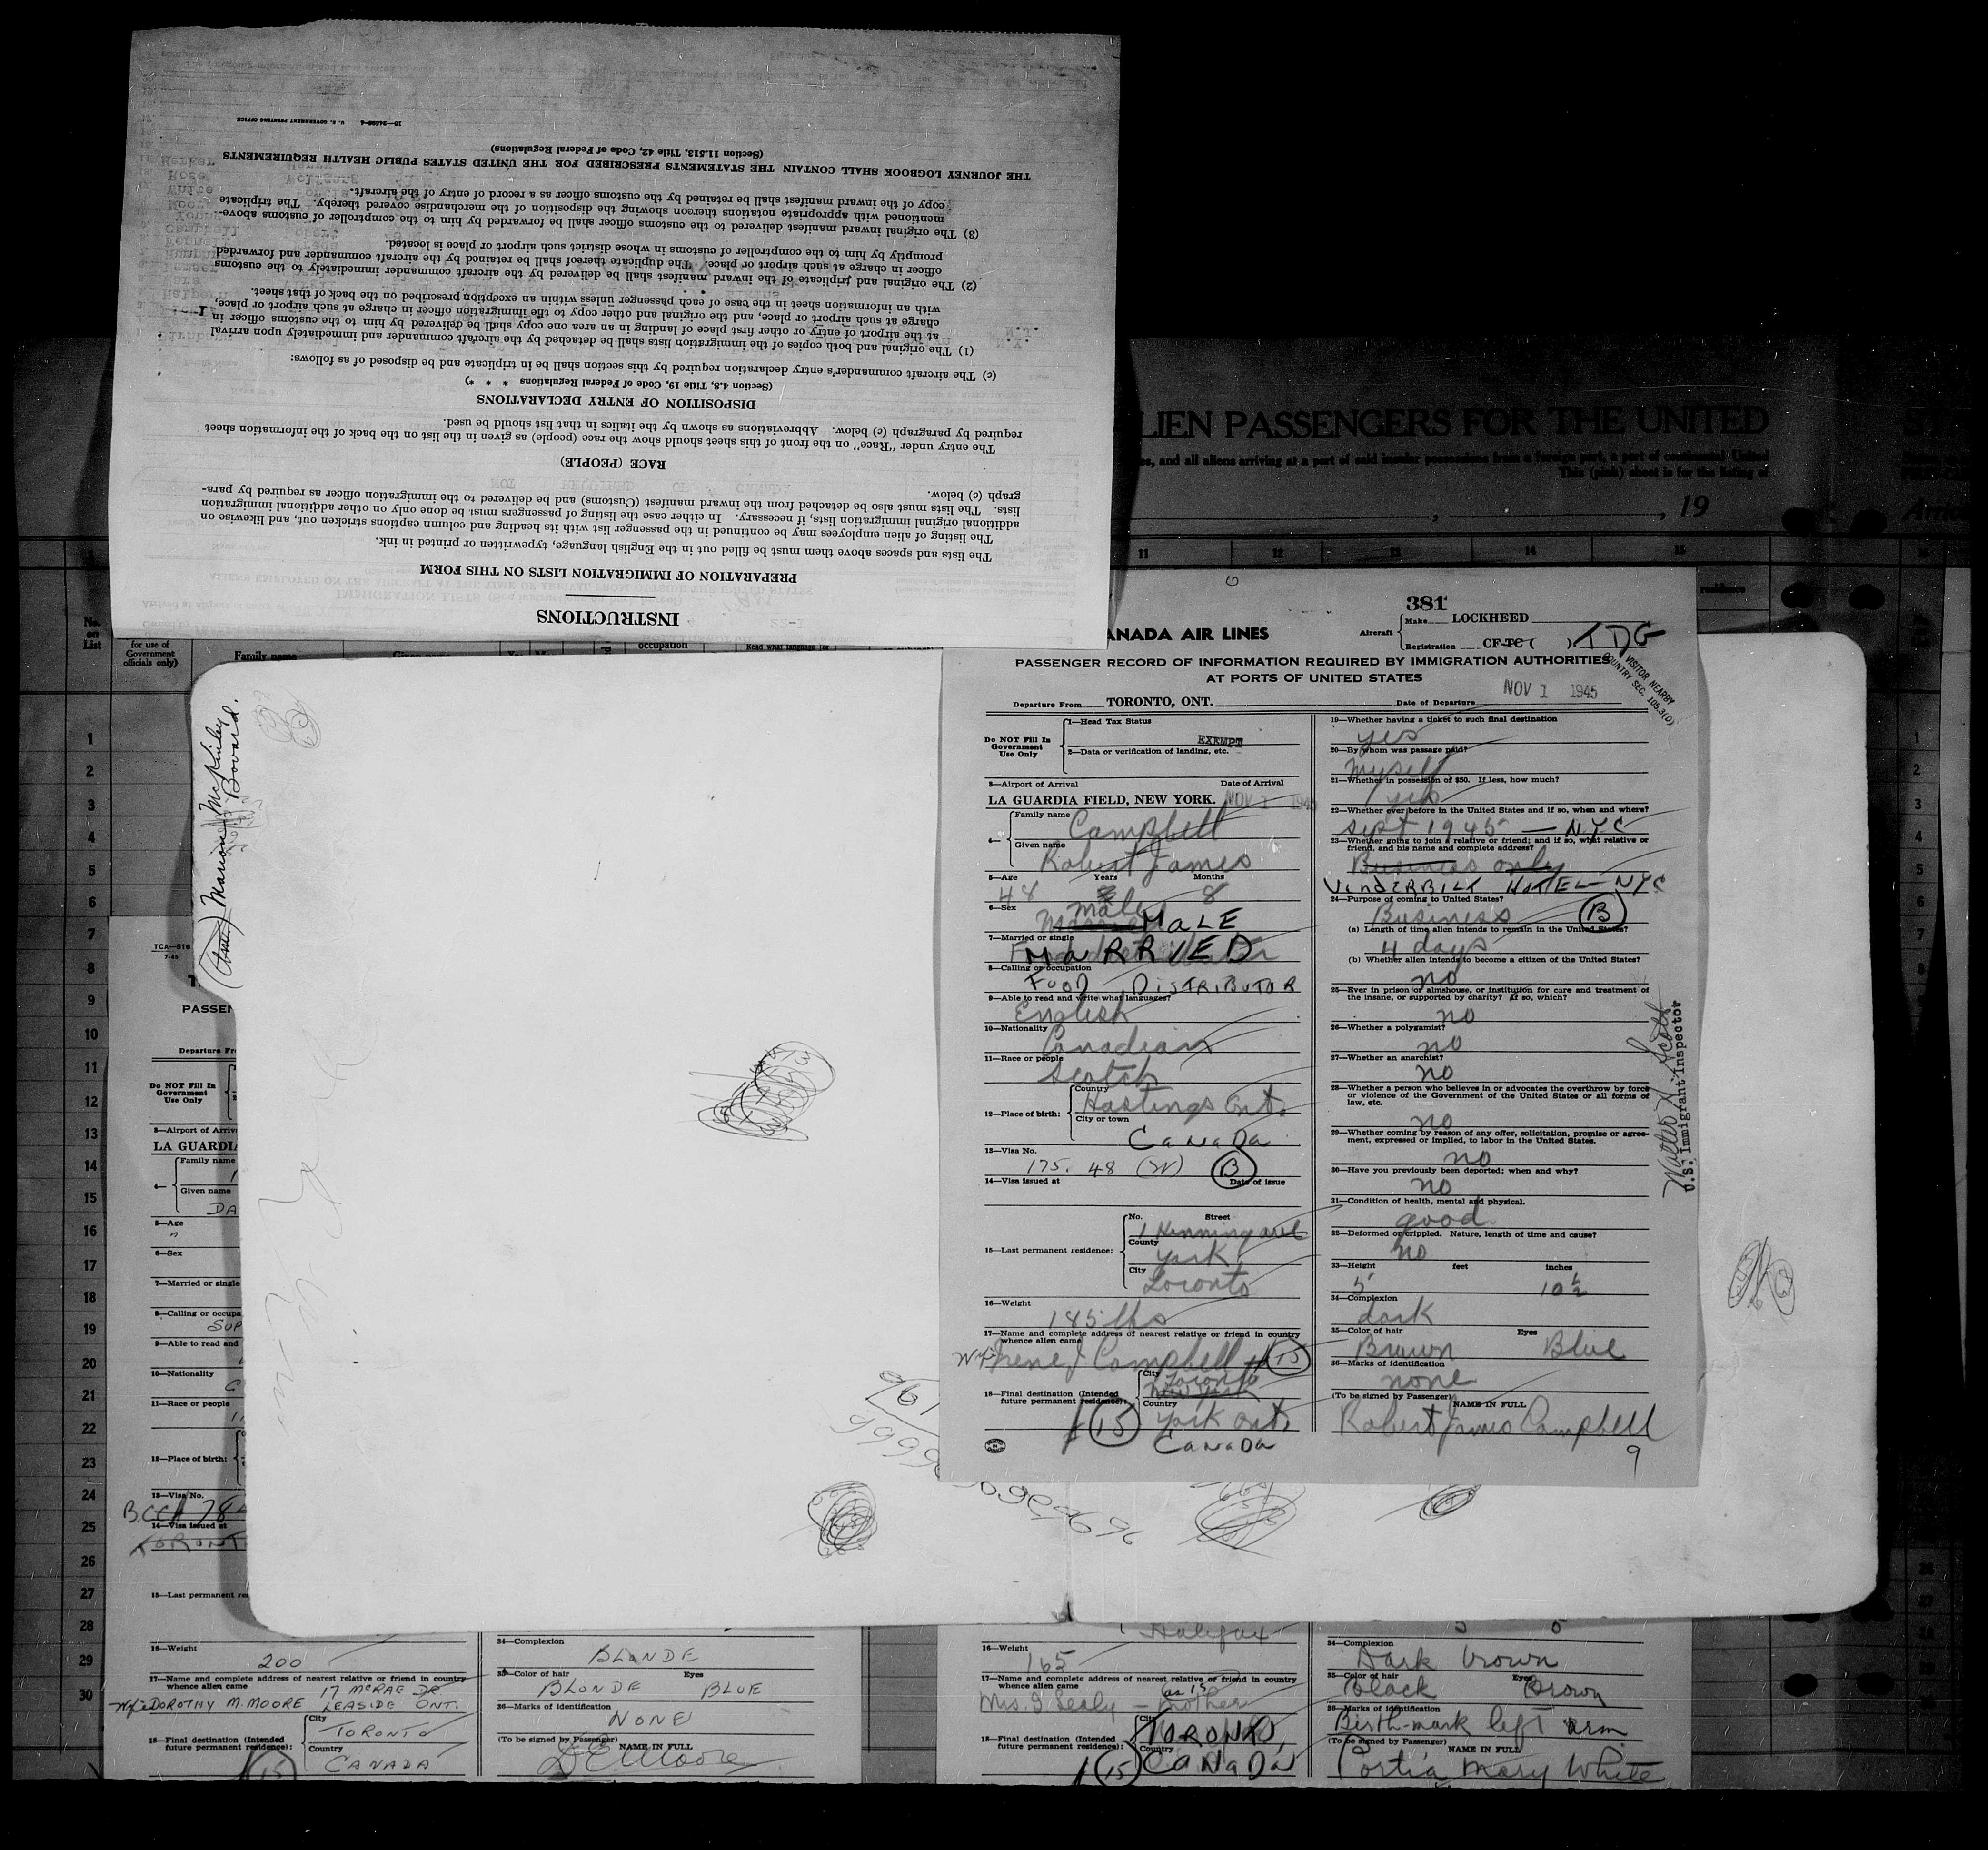 INSTRUCTIONS
PREPARATION OF IMMIGRATION LISTS ON THIS FORM
The lists and spaces above them must be filled out in the English language, typewritten or printed in ink.
The listing of alien employees may be continued in the passenger list with its heading and column captions stricken out, and likewise on
additional original immigration lists, if necessary. In either case the listing of passengers must be done only on other additional immigration
lists. The lists must also be detached from the inward manifest (Customs) and be delivered to the immigration officer as required by para-
graph (c) below.
RACE (PEOPLE)
The entry under "Race" on the front of this sheet should show the race (people) as given in the list on the back of the information sheet
required by paragraph (c) below. Abbreviations as shown by the italics in that list should be used.
DISPOSITION OF ENTRY DECLARATIONS
(Section 4.8, Title 19, Code of Federal Regulations * * *)
(c) The aircraft commander's entry declaration required by this section shall be in triplicate and be disposed of as follows:
(1) The original and both copies of the immigration lists shall be detached by the aircraft commander and immediately upon arrival
at the airport of entry or other first place of landing in an area one copy shall be delivered by him to the customs officer in
charge at such airport or place, and the original and other copy to the immigration officer in charge at such airport or place,
with an information sheet in the case of each passenger unless within an exception prescribed on the back of that sheet.
(2) The original and triplicate of the inward manifest shall be delivered by the aircraft commander immediately to the customs
officer in charge at such airport or place. The duplicate thereof shall be retained by the aircraft commander and forwarded
promptly by him to the comptroller of customs in whose district such airport or place is located.
(3) The original inward manifest delivered to the customs officer shall be forwarded by him to the comptroller of customs above-
mentioned with appropriate notations thereon showing the disposition of the merchandise covered thereby. The triplicate
copy of the inward manifest shall be retained by the customs officer as a record of entry of the aircraft.
THE JOURNEY LOGBOOK SHALL CONTAIN THE STATEMENTS PRESCRIBED FOR THE UNITED STATES PUBLIC HEALTH REQUIREMENTS
(Section 11.513, Title 42, Code of Federal Regulations)
U. S. GOVERNMENT PRINTING OFFICE
LIEN PASSENGERS FOR THE UNITED
es, and all aliens arriving at a port of said insular possessions from a foreign port, a port of continental United
This (pink) sheet is for the listing of
, 19
11 12 13 14 15
No. on List
for use of Government officials only)
Family name
occupation
Read what language (or
residence
1
2
3
4
5
6
7
8
9
10
11
12
13
14
15
16
17
18
19
20
21
22
23
24
25
26
27
28
29
30
Marion McKinley
Bovard.
381
ANADA AIR LINES
Aircraft
Make LOCKHEED
Registration CF-TC ( ) TDG
PASSENGER RECORD OF INFORMATION REQUIRED BY IMMIGRATION AUTHORITIES
AT PORTS OF UNITED STATES
VISITOR NEARBY
COUNTRY SEC. 105.3(D)
Departure From TORONTO, ONT.
Date of Departure NOV 1 1945
Do NOT Fill In Government Use Only
1—Head Tax Status
EXEMPT
2—Data or verification of landing, etc.
3—Airport of Arrival Date of Arrival
LA GUARDIA FIELD, NEW YORK. NOV 1 1945
4— Family name Campbell
Given name Robert James
5—Age Years Months
48 8
6—Sex
Male MALE
7—Married or single
MARRIED
8—Calling or occupation
FOOD DISTRIBUTOR
9—Able to read and write what languages?
English
10—Nationality
Canadian
11—Race or people
Scotch
12—Place of birth: Country
Hastings Ont.
City or town
CANADA
13—Visa No.
175. 48 (W) B
14—Visa issued at Date of issue
15—Last permanent residence:
No. Street
County
York
City
Toronto
16—Weight
185 lbs
17—Name and complete address of nearest relative or friend in country
whence alien came
Wife Irene J Campbell 15
18—Final destination (Intended
future permanent residence):
City
Toronto
New York
Country
15 York Ont.
CANADA
19—Whether having a ticket to such final destination
yes
20—By whom was passage paid?
Myself
21—Whether in possession of $50. If less, how much?
yes
22—Whether ever before in the United States and if so, when and where?
Sept 1945 — NYC
23—Whether going to join a relative or friend; and if so, what relative or
friend, and his name and complete address?
Business only
VANDERBILT HOTEL—NYC
24—Purpose of coming to United States?
Business B
(a) Length of time alien intends to remain in the United States?
4 days
(b) Whether alien intends to become a citizen of the United States?
no
25—Ever in prison or almshouse, or institution for care and treatment of
the insane, or supported by charity? If so, which?
no
26—Whether a polygamist?
no
27—Whether an anarchist?
no
28—Whether a person who believes in or advocates the overthrow by force
or violence of the Government of the United States or all forms of
law, etc.
no
29—Whether coming by reason of any offer, solicitation, promise or agree-
ment, expressed or implied, to labor in the United States.
no
30—Have you previously been deported; when and why?
no
31—Condition of health, mental and physical.
good
32—Deformed or crippled. Nature, length of time and cause?
no
33—Height feet inches
5 10½
34—Complexion
dark
35—Color of hair Eyes
Brown Blue
36—Marks of identification
none
(To be signed by Passenger) NAME IN FULL
Robert James Campbell
9
Walter A Scott
U.S. Immigrant Inspector
TCA—516
7-45
PASSEN
Departure Fr
Do NOT Fill In Government Use Only
3—Airport of Arriv
LA GUARDI
4— Family name
Given name
DA
5—Age
6—Sex
7—Married or single
8—Calling or occupa
SUP
9—Able to read and
10—Nationality
11—Race or people
12—Place of birth:
13—Visa No.
14—Visa issued at
TORONT
15—Last permanent re
16—Weight
200
17—Name and complete address of nearest relative or friend in country
whence alien came 17 McRAE DR
Wife DOROTHY M. MOORE LEASIDE ONT.
18—Final destination (Intended
future permanent residence):
City
TORONTO
Country
CANADA
15
34—Complexion
BLONDE
35—Color of hair Eyes
BLONDE BLUE
36—Marks of identification
NONE
(To be signed by Passenger) NAME IN FULL
DE Moore
Halifax
16—Weight
165
17—Name and complete address of nearest relative or friend in country
whence alien came as 15
Mrs. I. Sealy — Mother
18—Final destination (Intended
future permanent residence):
City
TORONTO,
Country
15 CANADA
5 8
34—Complexion
Dark brown
35—Color of hair Eyes
Black Brown
36—Marks of identification
Birth-mark left arm
(To be signed by Passenger) NAME IN FULL
Portia Mary White